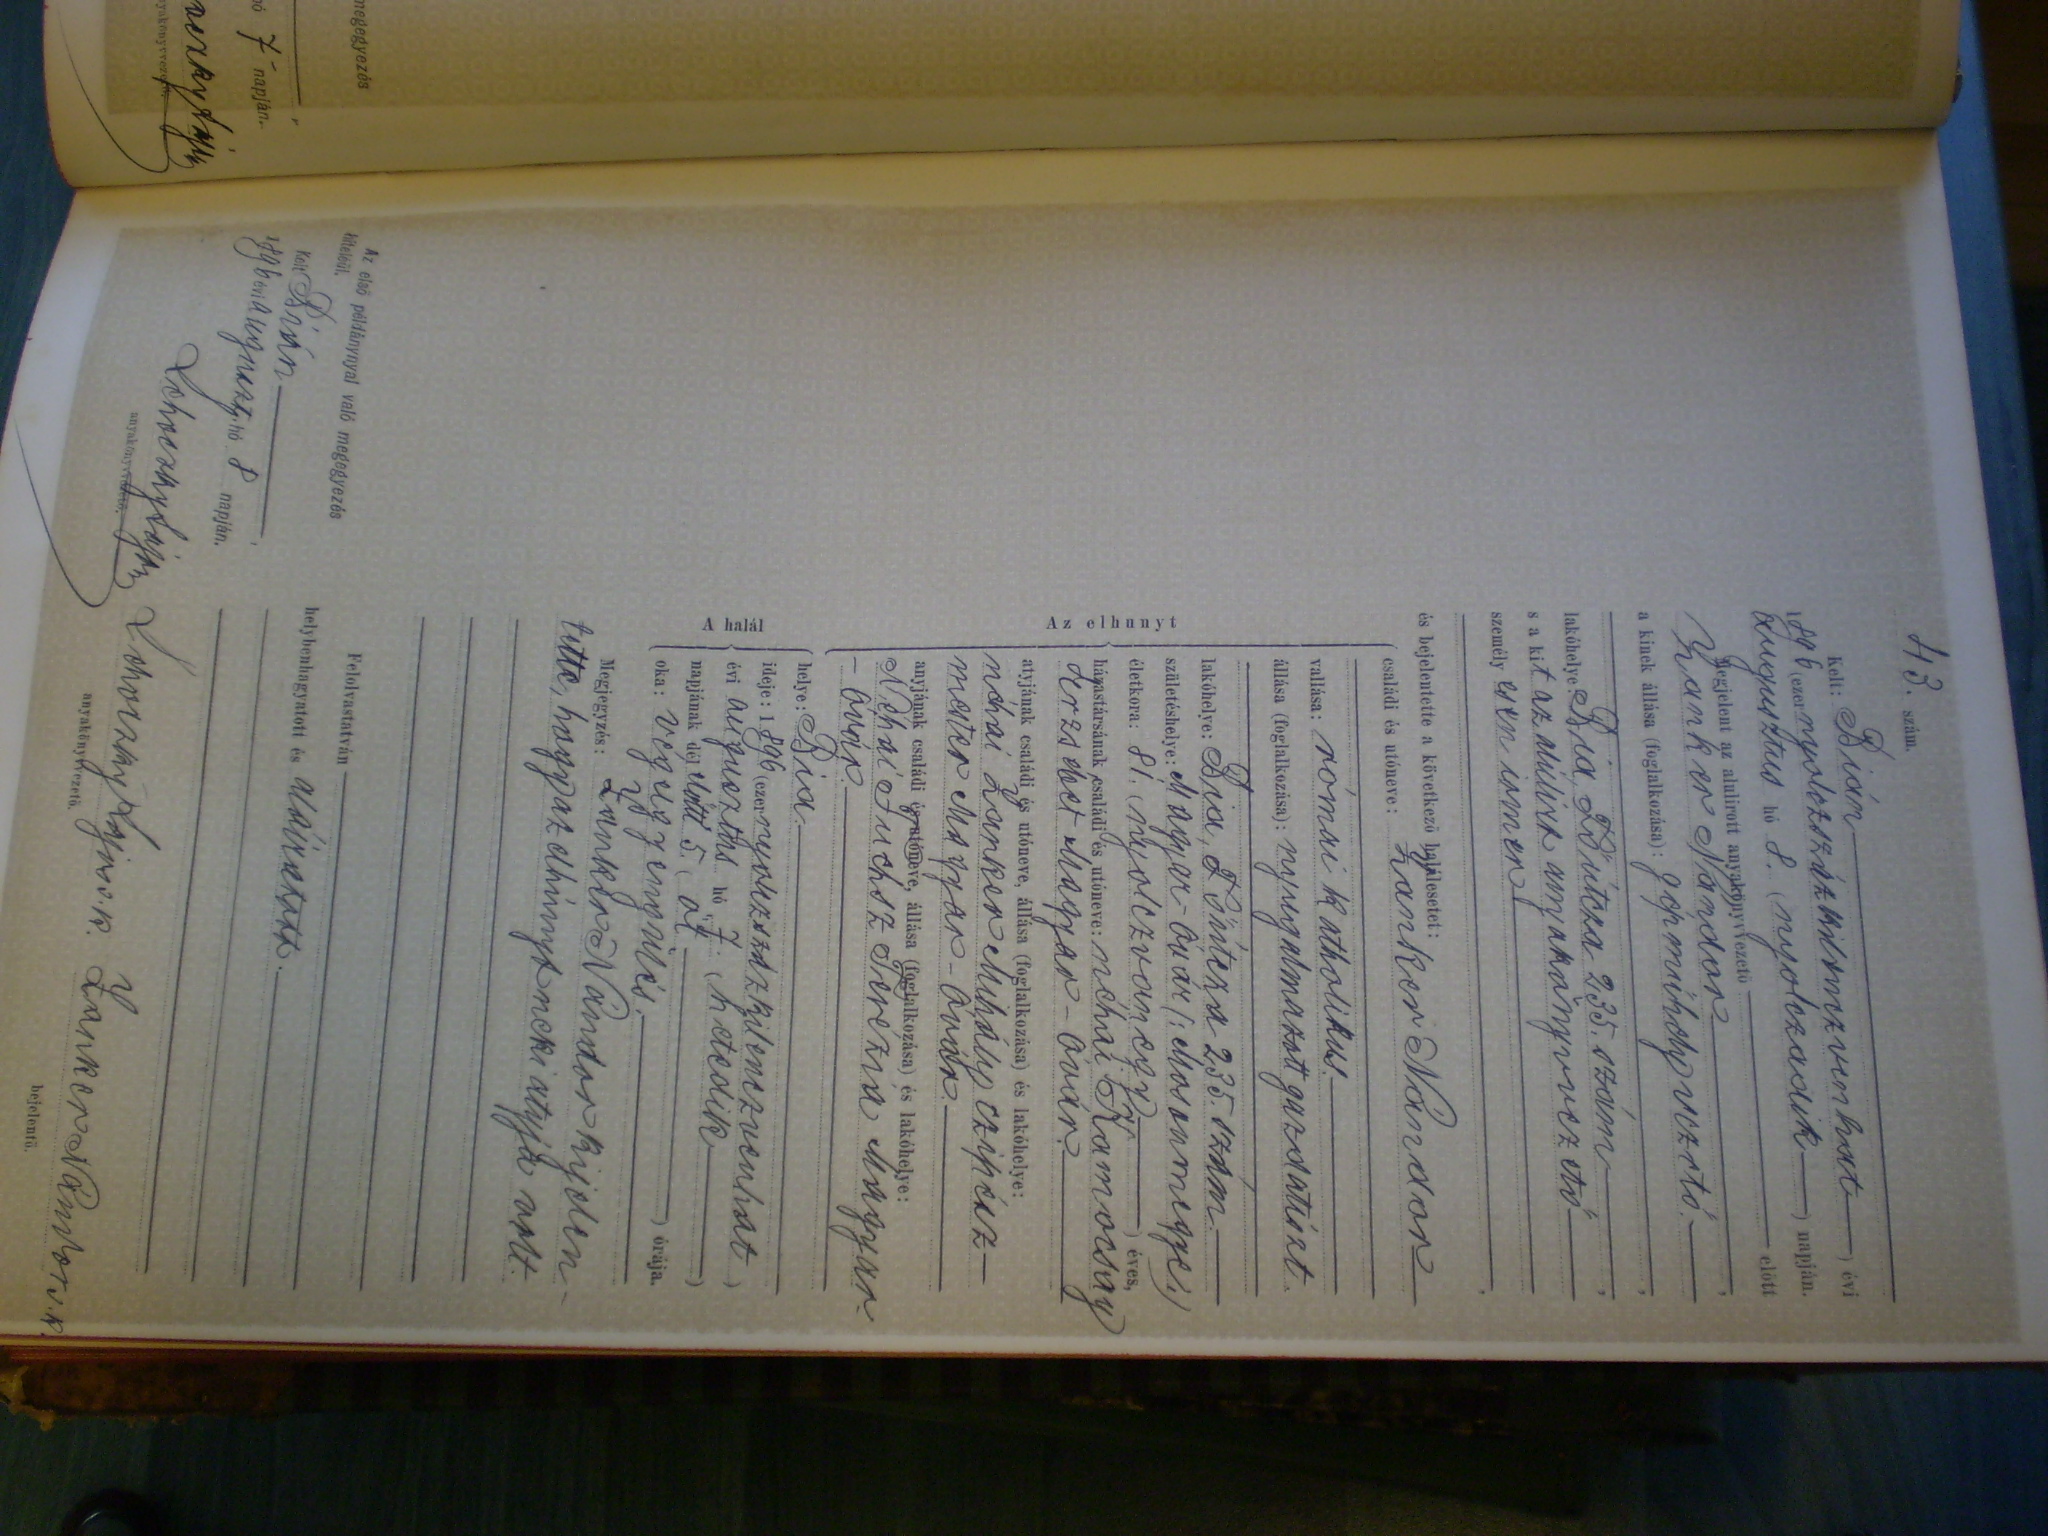 megegyezés
hó 7 napján.
anyakönyvvezető.
43. szám.
Kelt: Bián
1896 (ezer nyolczszázkilenczvenhat) évi
augusztus hó 8. (nyolczadik) napján.
Megjelent az alulirott anyakönyvvezető előtt
Nándor,
a kinek állása (foglalkozása): gépműhelyvezető,
lakóhelye: Bia, Főútcza 235. szám,
s a kit az alúlirt anyakönyvvezető
személyesen ismer,
és bejelentette a következő halálesetet:
Az elhunyt
családi és utóneve: Nándor
vallása: római katholikus.
állása (foglalkozása): nyugalmazott gazdatiszt.
lakóhelye: Bia, Főútcza 235. szám.
születéshelye: Magyar-Óvár (: Mosonmegye:)
életkora: 81. (nyolczvanegy) éves,
házastársának családi és utóneve: néhai
Erzsébet Magyar-Óvár.
atyjának családi és utóneve, állása (foglalkozása) és lakóhelye:
néhai Mihály czipész-
mester Magyar-Óvár.
anyjának családi és utóneve, állása (foglalkozása) és lakóhelye:
Néhai Terezia Magyar-
-Óvár.
A halál
helye: Bia.
ideje: 1896 (ezernyolczszázkilenczvenhat)
évi augusztus hó 7. (hetedik)
napjának d. előtt 5. (öt) órája.
oka: végelgyengülés.
Megjegyzés: Nándor kijelen-
tette, hogy az elhúnyt neki atyja volt.
Felolvastatván
helybenhagyatott és aláiratott.
Lajos s.k. Nándor s.k.
anyakönyvvezető. bejelentő.
Az első példánynyal való megegyezés
hiteléül.
Kelt Bián,
1896 évi auguszt. hó 8 napján.
anyakönyvvezető.